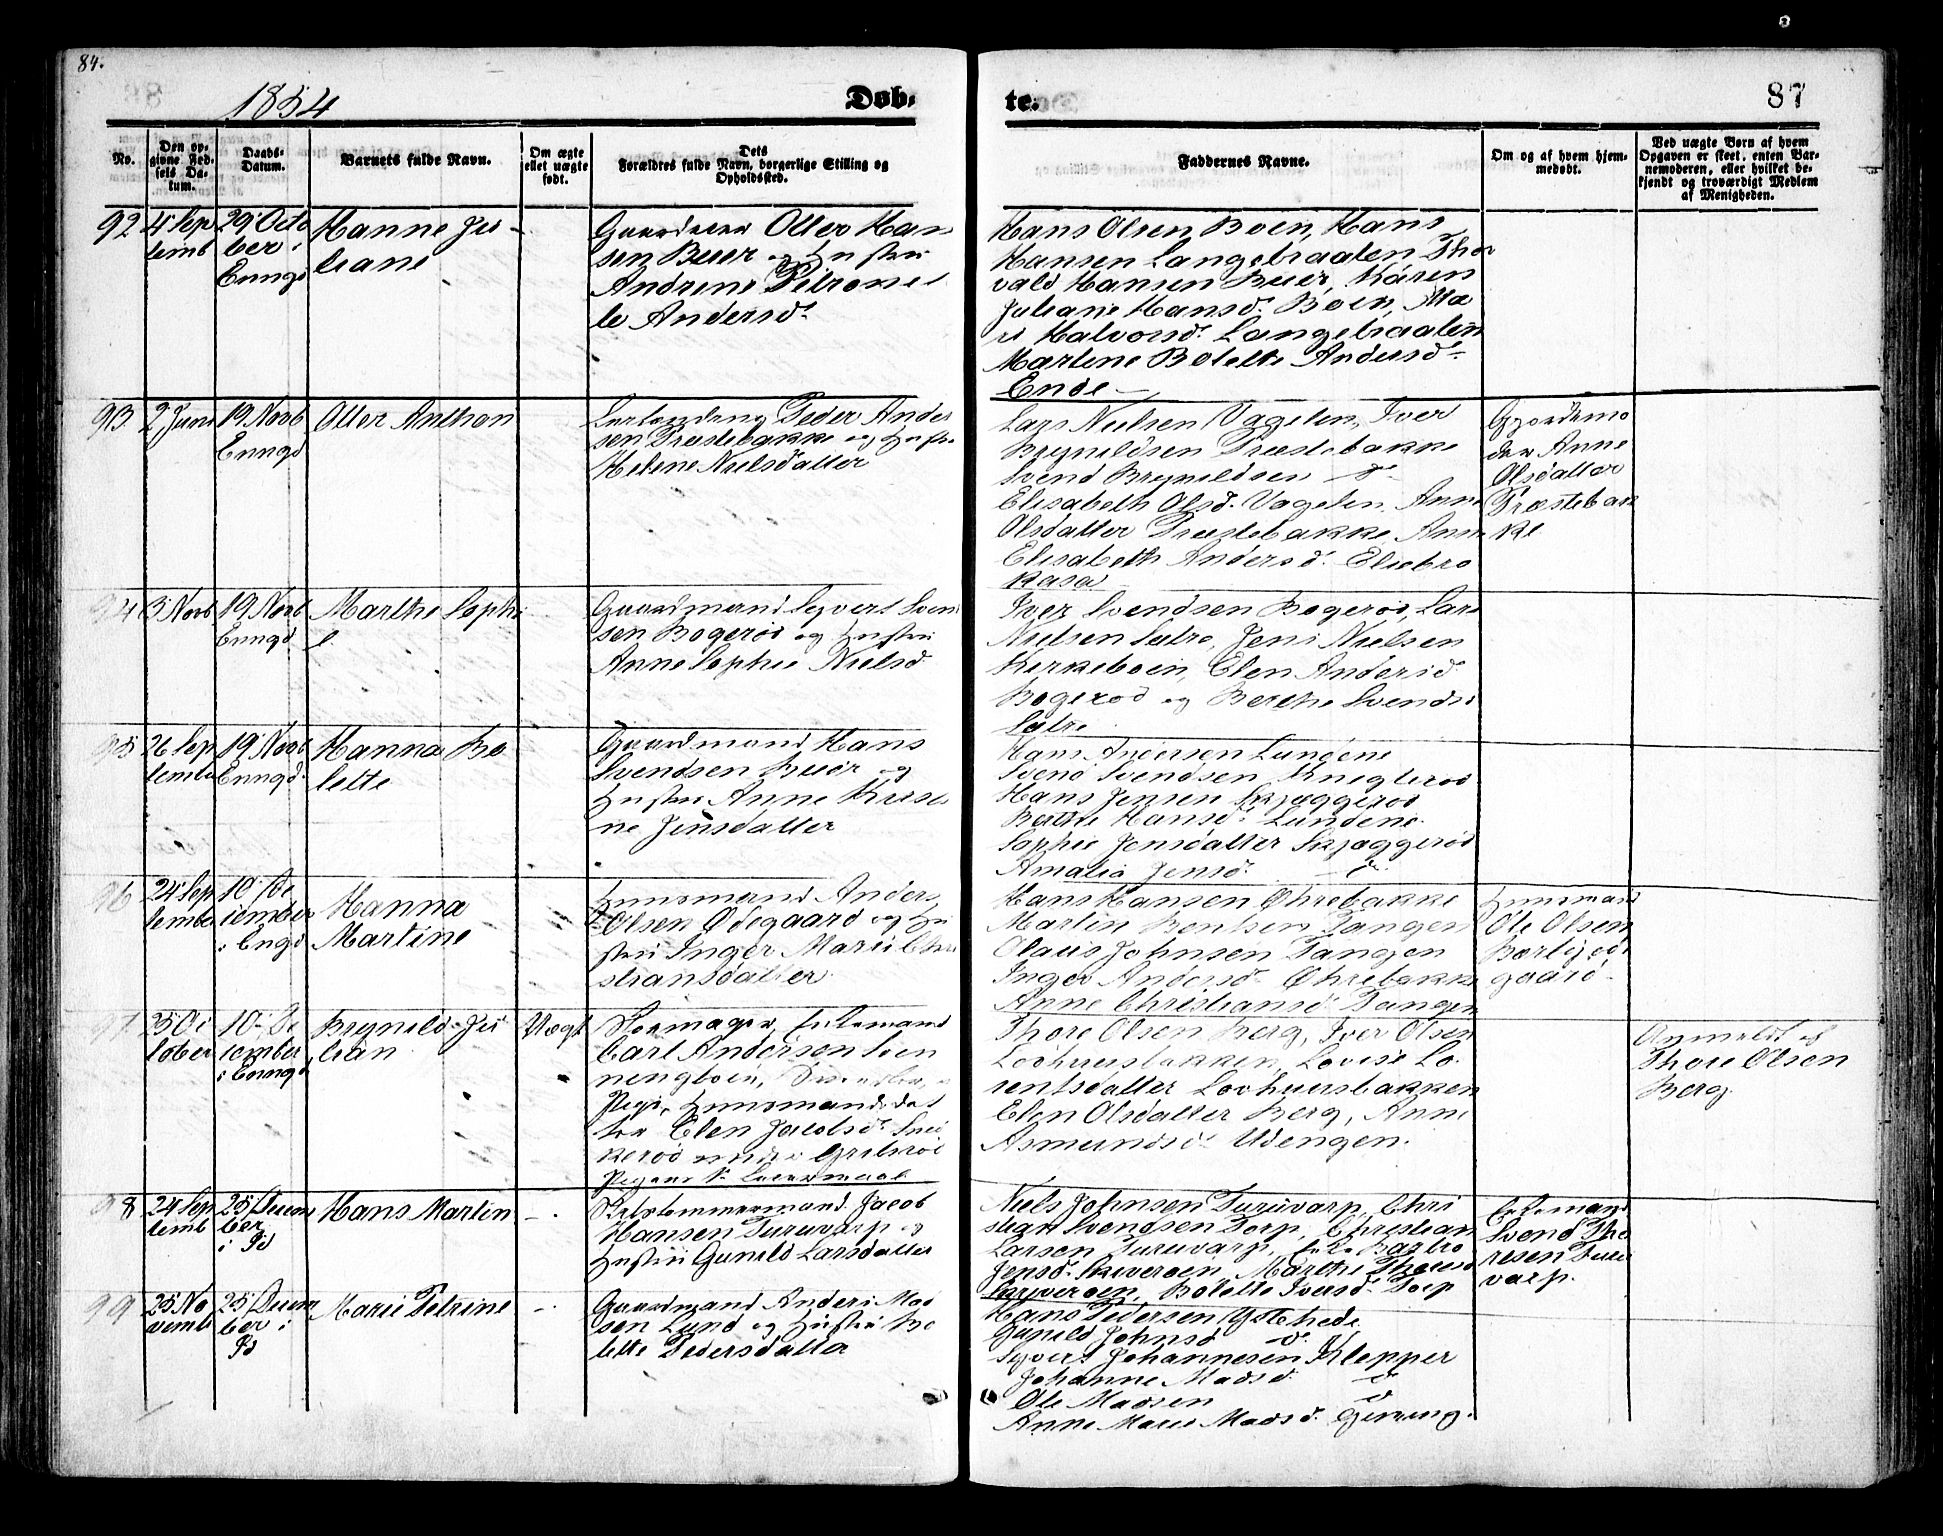 84.
1854
Døb-
te.
87
No.
Den op-
givne Fød-
sels Da-
tum.
Daabs-
Datum.
Barnets fulde Navn.
Om ægte
eller uægte
født.
Dets
Forældres fulde Navn, borgerlige Stilling og
Opholdssted.
Faddernes Navne.
Om og af hvem hjem-
medøbt.
Ved uægte Børn af hvem
Opgaven er skeet, enten Bar-
nemoderen, eller hvilket be-
kjendt og troværdigt Medlem
af Menigheden.
92
4 Sep
temb
29 Octo
ber i
Enngd
Hanne Ju-
liane
Otter Han
sen Buer og Hustru
Andrine Petronel
le Andersd.
Hans Olsen Boen, Hans
Hansen Langebraaten Thor
vald Hansen Buer, Karen
Juliane Hansd. Boen, Ma
ri Halvorsd. Langebraaten
Martine Bolette Andersd.
Ende
93
2 Juni
19 Novb
Enngd
Otter Anthon
Peder Ander
sen Præstebakke og Hustru
Helene Nielsdatter
Lars Nielsen Vagelen, Iver
Brynildsen Præstebakke
Svend Brynildsen do
Elisabeth Olsd. Vagelen, Anne
Olsdatter Præstebakke, Anne
Elisabeth Andersd.
Kasa
Gjordemo
der Anne
Olsdatter
Præstebak
ke
94
3 Novb
19 Novb
Enngd
Marthe Sophi
e
Gaardmand Syvert Svend
sen Bogerød og Hustru
Anne Sophie Nielsd
Iver Svendsen Bogerød, Lars
Nielsen Sætre, Jens Nielsen
Kirkeboen, Elen Andersd.
Bogerød og Berthe Svendsd
Sætre
95
26 Sep
tember
19 Novb
Enngd.
Hanna Bo
lette
Gaardmand Hans
Svendsen Buer og
Hustru Anne Kirsti
ne Jensdatter
Hans Andersen Lundene
Svend Svendsen Knigterød
Hans Jensen Skjæggerød
Berthe Hansd. Lundene.
Sophie Jensdatter Skjæggerød
Amalia Jensd. do
96
24 Sep
tember
10 De
cember
i Engd
Hanna
Martine
Huusmand Anders
Olsen Ødegaard og Hu
stru Inger Marie Chri
stiansdatter.
Hans Hansen Øhrebakke
Martin Bentsen Tangen
Olaus Johnsen Tangen
Inger Andersd. Øhrebakke
Anne Christiansd. Tangen
Huusmand
Ole Olsen
gaard.
97
5 Oc
tober
10 De
cember
i Enngd
Brynild Ju
lian
Uægt
Skomager,
Carl Andersen
Pige, Huusmandsdat
ter Elen Jacobsd.
Pigens 1. Leiermaal
Thore Olsen Berg, Iver Olsen
Lovhuusbakken, Lovise Lo-
rentsdatter Lovhuusbakken
Elen Olsdatter Berg, Anne
Asmundsd. Udengen.
Anmeldt af
Thore Olsen
Berg.
98
24 Sep
temb
25 Decem
ber
i Id
Hans Martin
Jacob
Hansen Turuvarp og
Hustru Gunild Larsdatter
Niels Johnsen Turuvarp, Chri
stian Svendsen Torp, Christian
Larsen Turuvarp, Barbro
Jensd. Skiveroen, Marthe Thoresd
Bolette Iversd. Torp
Svend Tho
resen Turu
varp.
99
25 No
vemb
25 Decem
ber i
Id
Marie Petrine
Gaardmand Anders Mad
sen Lund og Hustru Bo
lette Pedersdatter
Hans Pedersen Ystehede
Gunild Johnsd do.
Syvert Johannesen Klepper
Johanne Madsd. do
Ole Madsen do
Anne Marie Madsd.